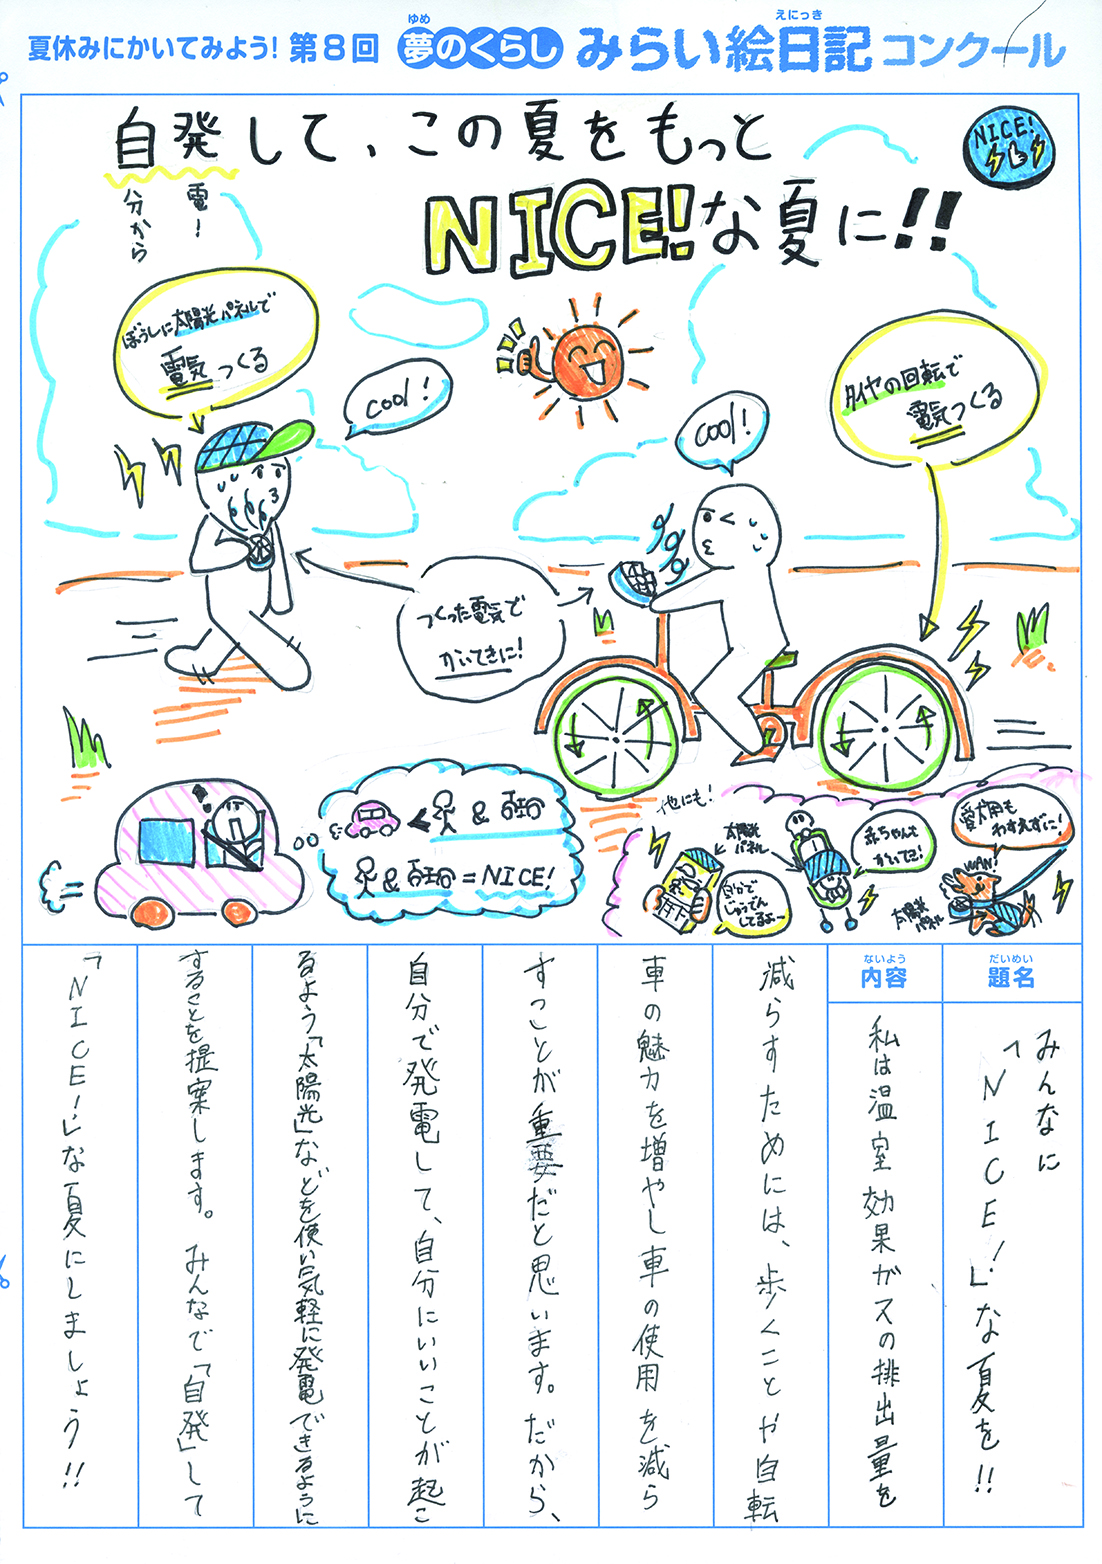 夏休みにかいてみよう! 第8回 夢のくらし みらい絵日記 コンクール
ゆめ
えにっき
自発して、この夏をもっと
電!
分から
NICE!な夏に!!
NICE!
ぼうしに太陽光パネルで
電気つくる
cool!
cool!
タイヤの回転で
電気つくる
つくった電気で
かいてきに!
自転
& 自転 = NICE!
他にも!
太陽光
パネル
自分で
じゅうでん
してるよ〜
赤ちゃんも
かいてき!
愛犬用も
わすれずに!
WAN!
太陽光
パネル
だいめい
題名
みんなに
「NICE!」な夏を!!
ないよう
内容
私は温室効果ガスの排出量を
減らすためには、歩くことや自転
車の魅力を増やし車の使用を減ら
すことが重要だと思います。だから、
自分で発電して、自分にいいことが起こ
るよう「太陽光」などを使い気軽に発電できるように
することを提案します。みんなで「自発」して
「NICE!」な夏にしましょう!!